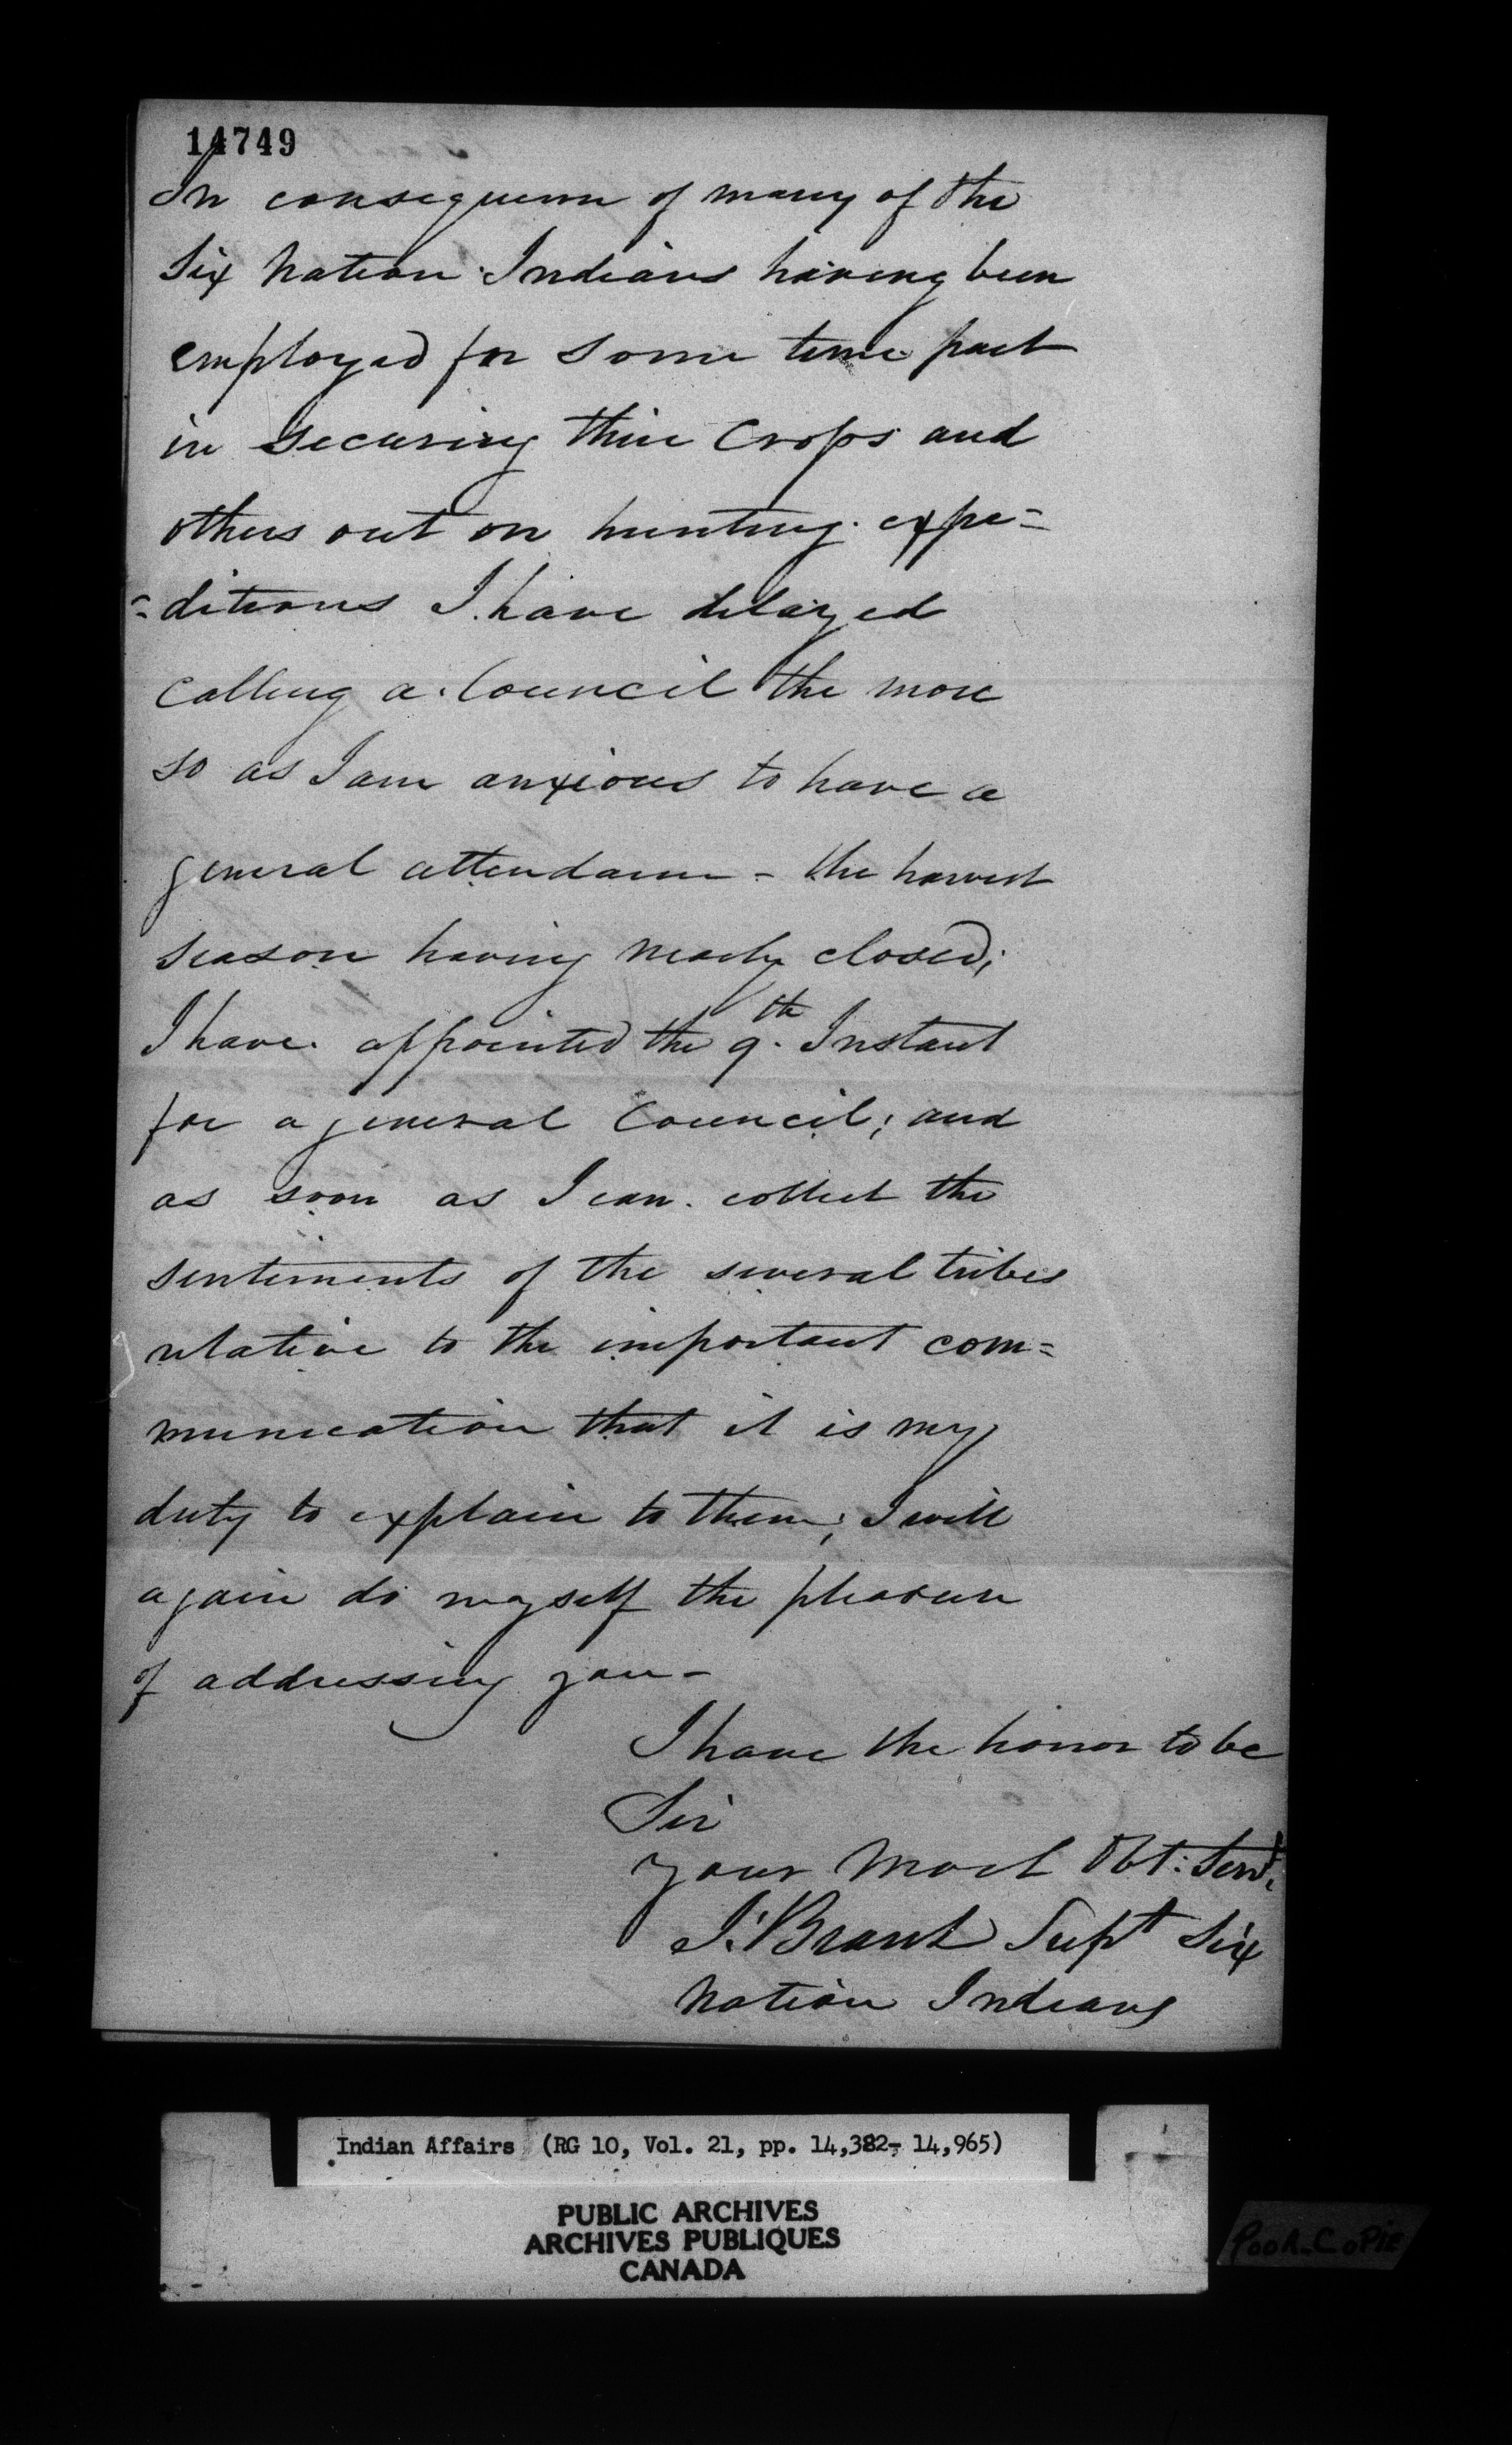 14749
In consequence of many of the
Six Nation Indians having been
employed for some time past
in securing their Crops and
others out on hunting expe=
=ditions I have delayed
calling a Council the more
so as I am anxious to have a
general attendance - the harvest
season having nearly closed;
I have appointed the 9th Instant
for a general Council; and
as soon as I can collect the
sentiments of the several tribes
relative to the important com=
munication that it is my
duty to explain to them; I will
again do myself the pleasure
of addressing you -
I have the honor to be
Sir
your Most Obt: Servt.
J: Brant Supt Six
Nation Indians
Indian Affairs (RG 10, Vol. 21, pp. 14,382- 14,965)
PUBLIC ARCHIVES
ARCHIVES PUBLIQUES
CANADA
POOR COPIE